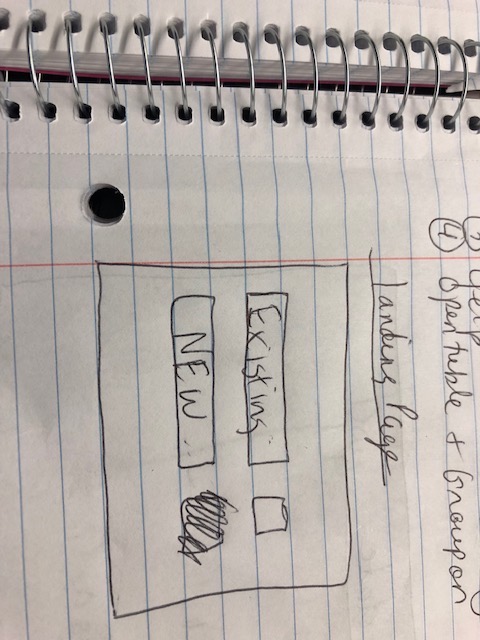 ③ Yelp
④ Opentable + Groupon
Landing Page
Existing
NEW